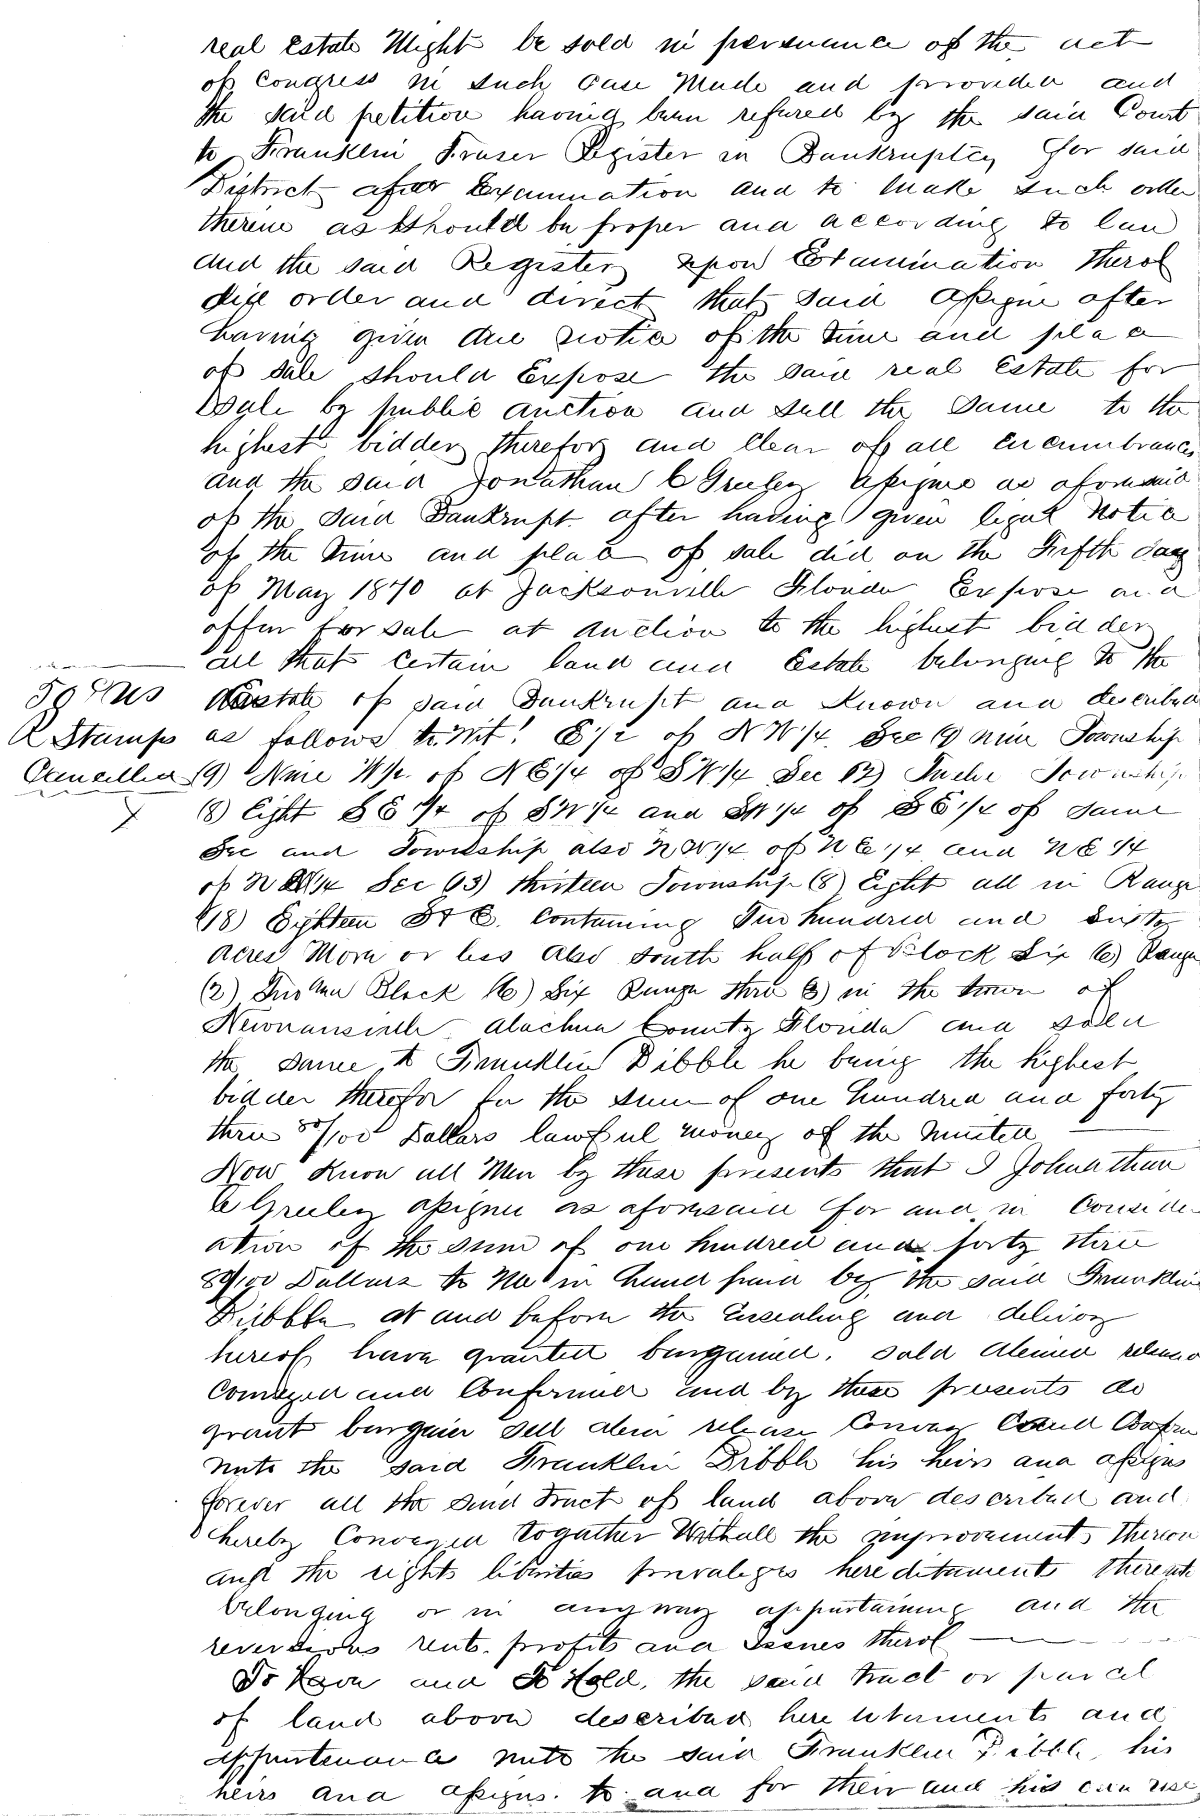 real Estate Might be sold in persuance of the act
of Congress in such case Made and provided and
the said petition having been refured by the said Court
to Franklin Fraser Register in Bankruptcy for said
District after Examination and to Make such order
therein as should be proper and according to law
and the said Register upon Examination therof
did order and direct that said Assigne after
having given due notice of the time and place
of sale should Expose the said real Estate for
sale by public auction and sell the same to the
highest bidder therefor and Clear of all Encumbrances
and the said Jonathan C Greeley Assigne as aforesaid
of the said Bankrupt after having given legal Notice
of the time and place of sale did on the Fifth day
of May 1870 at Jacksonville Florida Expose and
offer for sale at auction to the highest bidder
all that certain land and Estate belonging to the
Estate of said Bankrupt and Known and described
50 cts U S
R Stamps
Cancelled
X
as follows to Wit! E 1/2 of N W 1/4 Sec (9) nine Township
(9) Nine W 1/2 of N E 1/4 of S W 1/4 Sec (12) Twelve Township
(8) Eight S E 1/4 of S W 1/4 and S W 1/4 of S E 1/4 of same
Sec and Township also N W 1/4 of N E 1/4 and N E 1/4
of N W 1/4 Sec (13) thirteen Township (8) Eight all in Range
(18) Eighteen S & E. Containing Two hundred and sixty
acres More or less also south half of Block Six (6) Range
(2) Two and Block (6) Six Range three (3) in the town of
Newnansville Alachua County Florida and sold
the same to Franklin Dibble he being the highest
bidder therefor for the sum of one hundred and forty
three 80/100 Dollars lawful money of the United
Now Know all Men by these presents that I Johnathan
C Greeley assignee as aforesaid for and in Consider
ation of the sum of one hundred and forty three
80/100 Dollars to Me in hand paid by the said Franklin
Dibble at and before the Ensealing and delivery
hereof have granted bargained. sold aliened released
Conveyed and Confirmed and by these presents do
grant bargain sell alien release Convey and Confirm
unto the said Franklin Dibble his heirs and assigns
forever all the said tract of land above described and
hereby Conveyed togather With all the improvements thereon
and the rights liberties privaleges hereditaments thereunto
belonging or in anyway appurtaining and the
reversions rents. profits and Issues therof
To Have and To Hold, the said tract or parcel
of land above described hereditaments and
appurtenances unto the said Franklin Dibble, his
heirs and assigns. to and for their and his own use